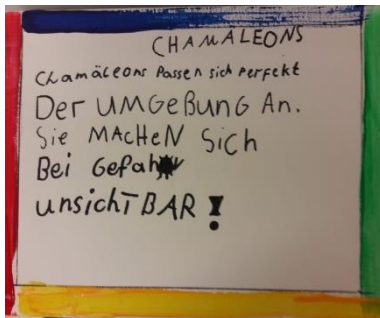 CHAMÄLEONS
Chamäleons Passen sich Perfekt
Der UMGEBUNG An.
Sie MACHEN Sich
Bei Gefahr
unsichTBAR!